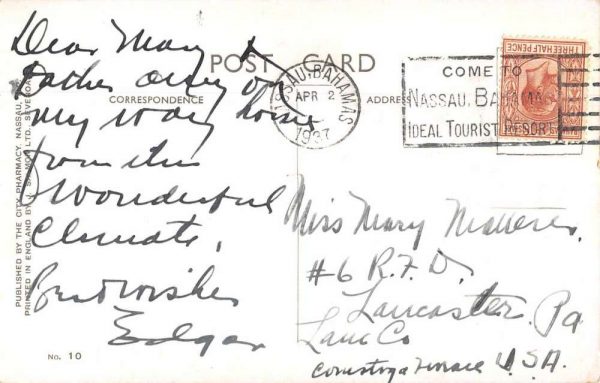 POST CARD
CORRESPONDENCE
ADDRESS
Dear Mary &
Father am on
my way home
from this
Wonderful
Climate,
Best Wishes
Edgar
No. 10
PUBLISHED BY THE CITY PHARMACY, NASSAU,
PRINTED IN ENGLAND BY J. SALMON LTD., SEVENOAKS
NASSAU, BAHAMAS
APR 2
1937
COME TO
NASSAU, BAHAMAS
IDEAL TOURIST RESORT
THREE HALFPENCE
Miss Mary
#6 R.F.D.
Lancaster, Pa
Lanc Co
Conestoga Terrace U.S.A.